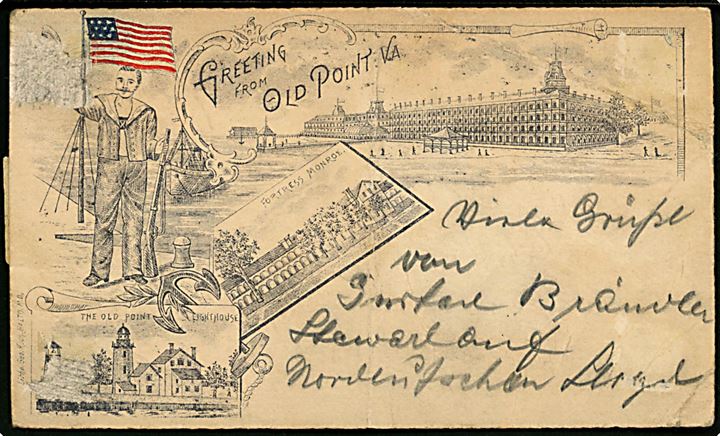 GREETING
FROM
OLD POINT. VA.
FORTRESS MONROE.
THE OLD POINT LIGHTHOUSE
Viele Grüße
von
Gustav
Steward auf
Norddeutschen Lloyd